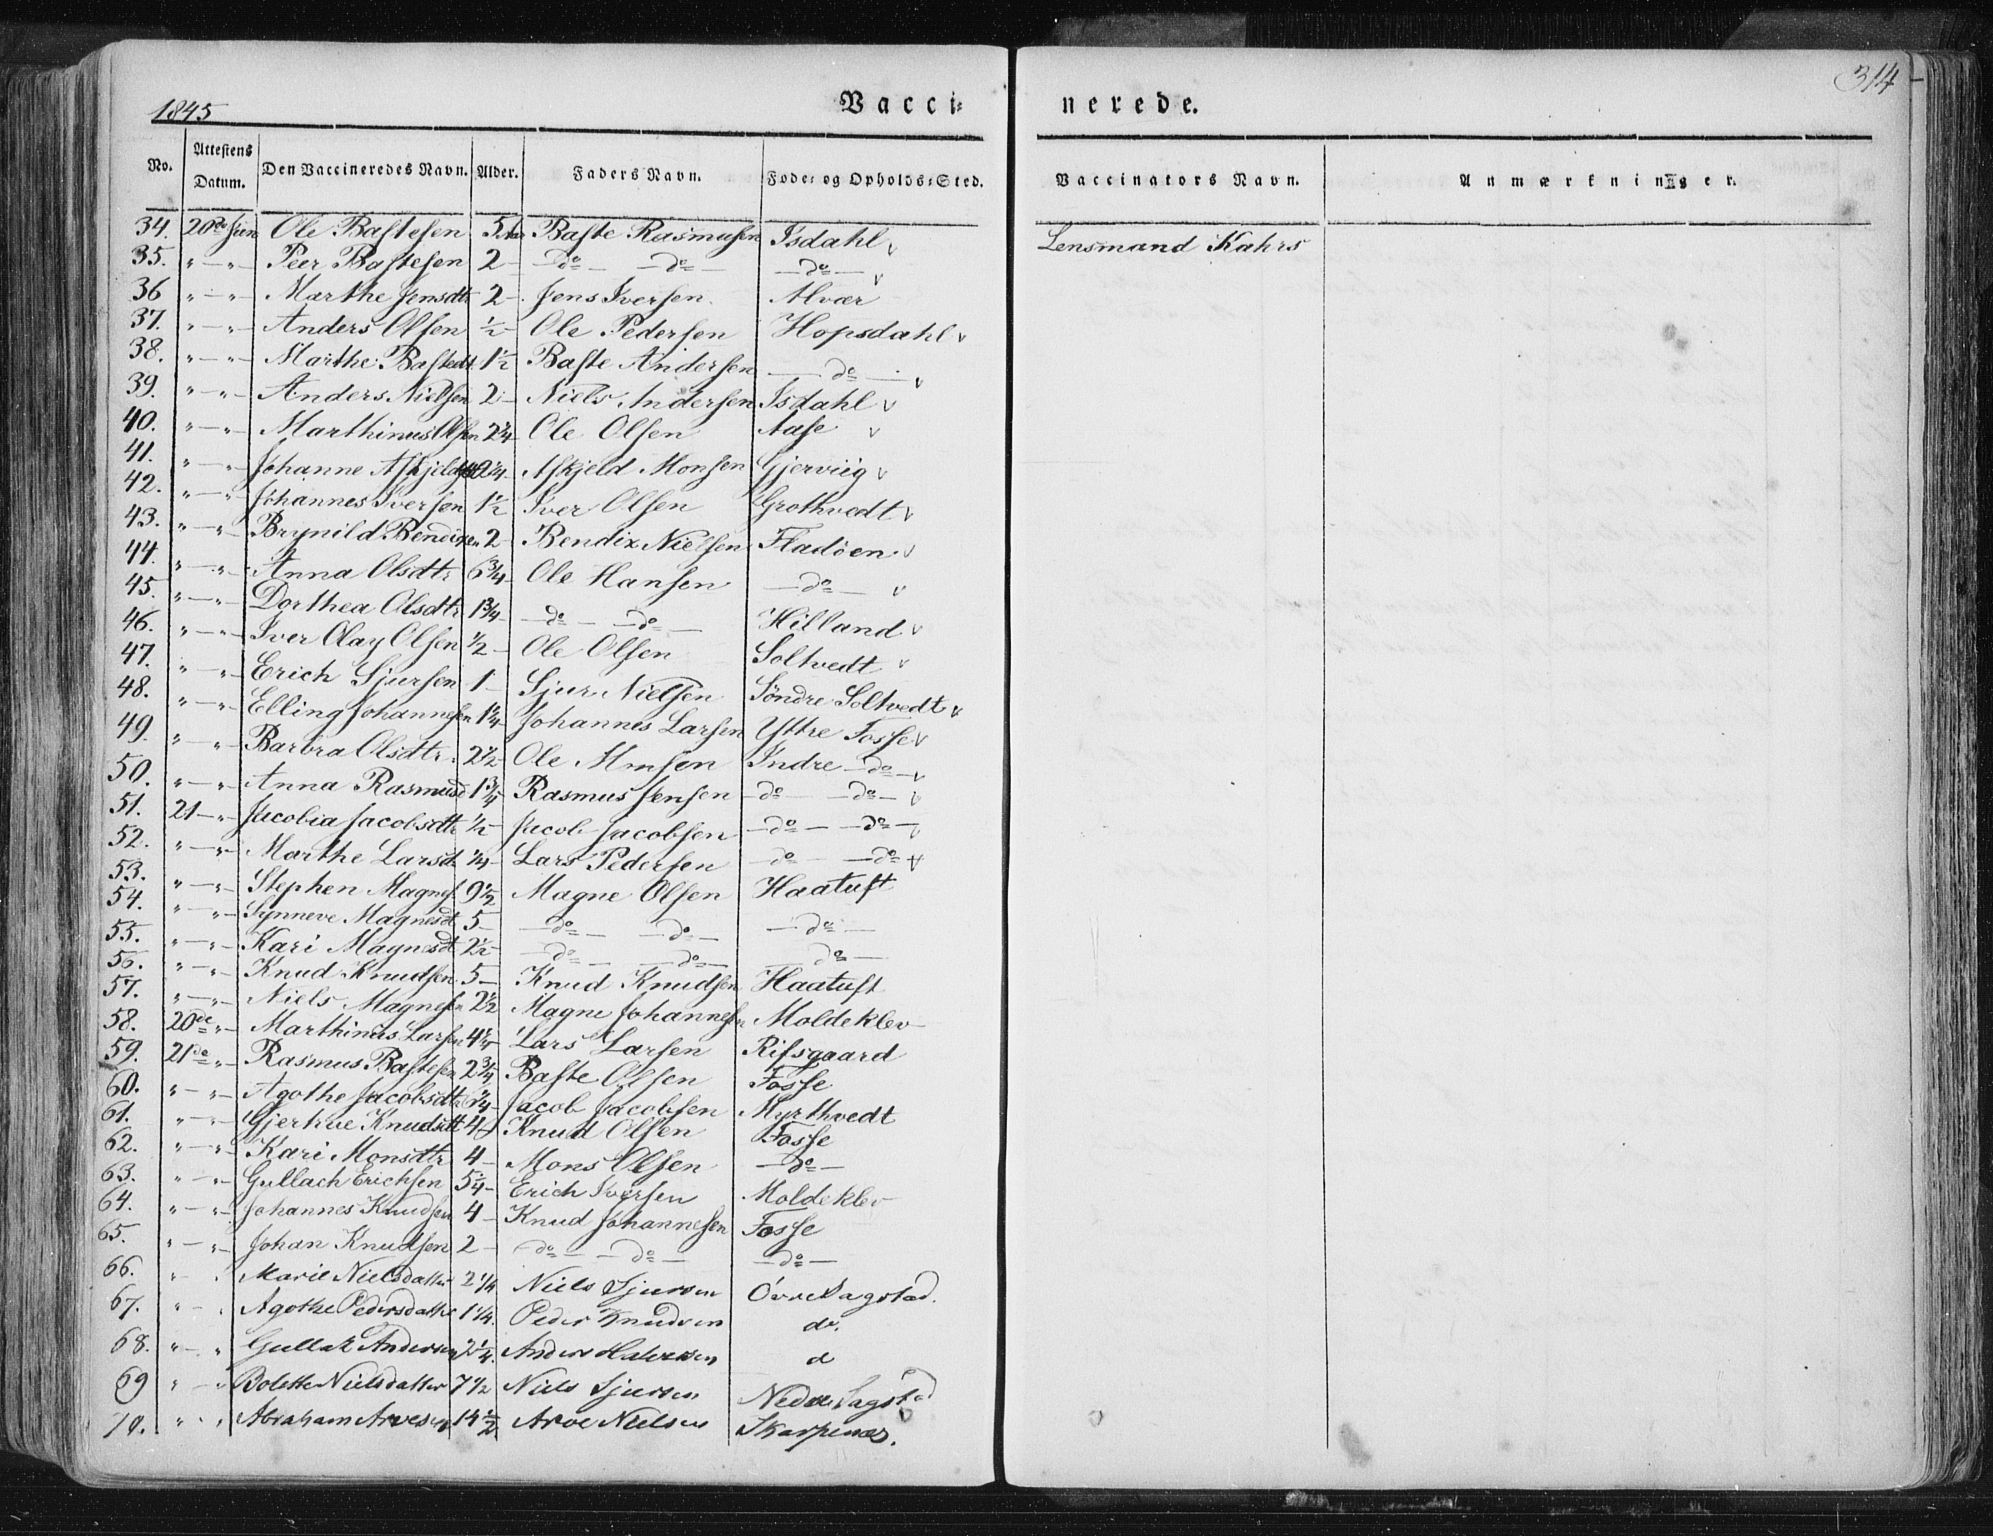 1845 Vacci= nerede. 314
No. Attestens Datum. Den Vaccineredes Navn. Alder. Faders Navn. Føde= og Opholds=Sted. Vaccinators Navn. Anmærkninger.
34. 20de Juni Ole Bastesen 5 Aar Baste Rasmusen Isdahl v Lensmand Kahrs
35. " — " Peer Bastesen 2 — — do — — do — — do — v
36 " — " Marthe Jensdtr 2 — Jens Iversen Alvær
37. " — " Anders Olsen ½ Ole Pedersen Hopsdahl v
38. " — " Marthe Bastedt. 1½ Baste Andersen — do — v
39. " — " Anders Nielsen 2 — Niels Andersen Isdahl v
40. " — " Marthinus Olsen 2¼ Ole Olsen Aase v
41. " — " Johanne Askjeld 2¼ Askjeld Monsen Gjerviig v
42. " — " Johannes Iversen 1½ Iver Olsen Grothvedt v
43. " — " Brynild Bendixen 2 — Bendix Nielsen Fladöen v
44. " — " Anna Olsdtr 6¾ Ole Hansen — do — v
45. " — " Dorthea Olsdtr 1¾ — do — — do — Hilland v
46. " — " Iver Olay Olsen ½ — Ole Olsen Soltvedt v
47. " — " Erich Sjursen 1 — Sjur Nielsen Söndre Soltvedt v
48. " — " Elling Johannesen 1¼ Johannes Larsen Yttre Fosse v
49. " — " Barbra Olsdtr. 2½ Ole Monsen Indre — do — v
50. " — " Anna Rasmusd 1¾ Rasmus Jensen — do — — do — v
51. 21 — " Jacobia Jacobsdtr ½ — Jacob Jacobsen — do — — do — v
52. " — " Marthe Larsd. ¼ — Lars Pedersen — do — — do — v
53. " — " Stephen Magnes. 9½ Magne Olsen Haatuft
54. " — " Synneve Magnesdt 5 — — do — — do — — do —
55. " — " Kari Magnesdt 2½ — do — — do — — do —
56. " — " Knud Knudsen 5 — Knud Knudsen Haatuft
57. " — " Niels Magnesen 2½ Magne Johannesen Moldeklev
58. 20de " Marthinus Larsen 4¼ Lars Larsen Rifsgaard
59. 21de " Rasmus Bastesen 2¾ Baste Olsen Fosse
60. " — " Agothe Jacobsdtr ¼ — Jacob Jacobsen Myrthvedt
61. " — " Gjertrue Knudsdt 4 Knud Olsen Fosse
62. " — " Kari Monsdtr 4 — Mons Olsen — do —
63. " — " Gullach Erichsen 5¼ — Erich Iversen Moldeklev
64. " — " Johannes Knudsen 4 — Knud Johannesen Fosse
65. " — " Johan Knudsen 2 — — do — — do — — do —
66. " — " Marie Nielsdatter 2 1/4 Niels Sjursen Övre Sagstad.
67. " — " Agothe Pedersdatter 1 1/4. Peder Knudsen do.
68. " — " Gullak Andersen 2¼. Anders d
69 " — " Bolette Nielsdatter 7 1/2 Niels Sjursen Nedre Sagstad
70. " — " Abraham Arvesen 14½ Arve Nielsen Skarpenæs.